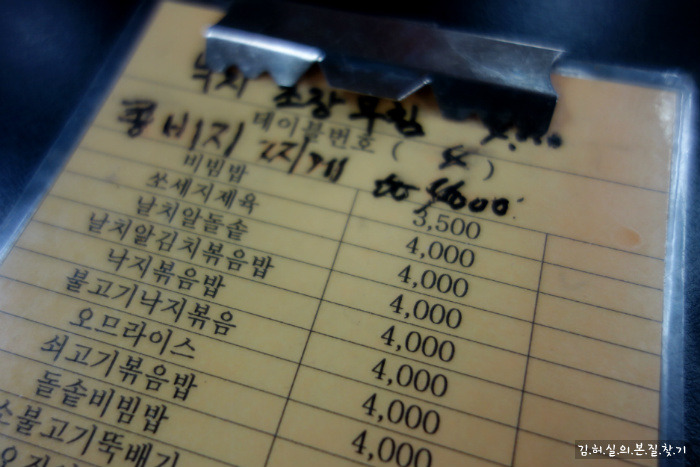 낙지 초장무침 4,000
테이블번호 ( 4 )
콩비지 찌게 4000
비빔밥 3,500
쏘세지제육 4,000
날치알돌솥 4,000
날치알김치볶음밥 4,000
낙지볶음밥 4,000
불고기낙지볶음 4,000
오므라이스 4,000
쇠고기볶음밥 4,000
돌솥비빔밥
소불고기뚝배기
김.허.실.의.본.질.찾.기